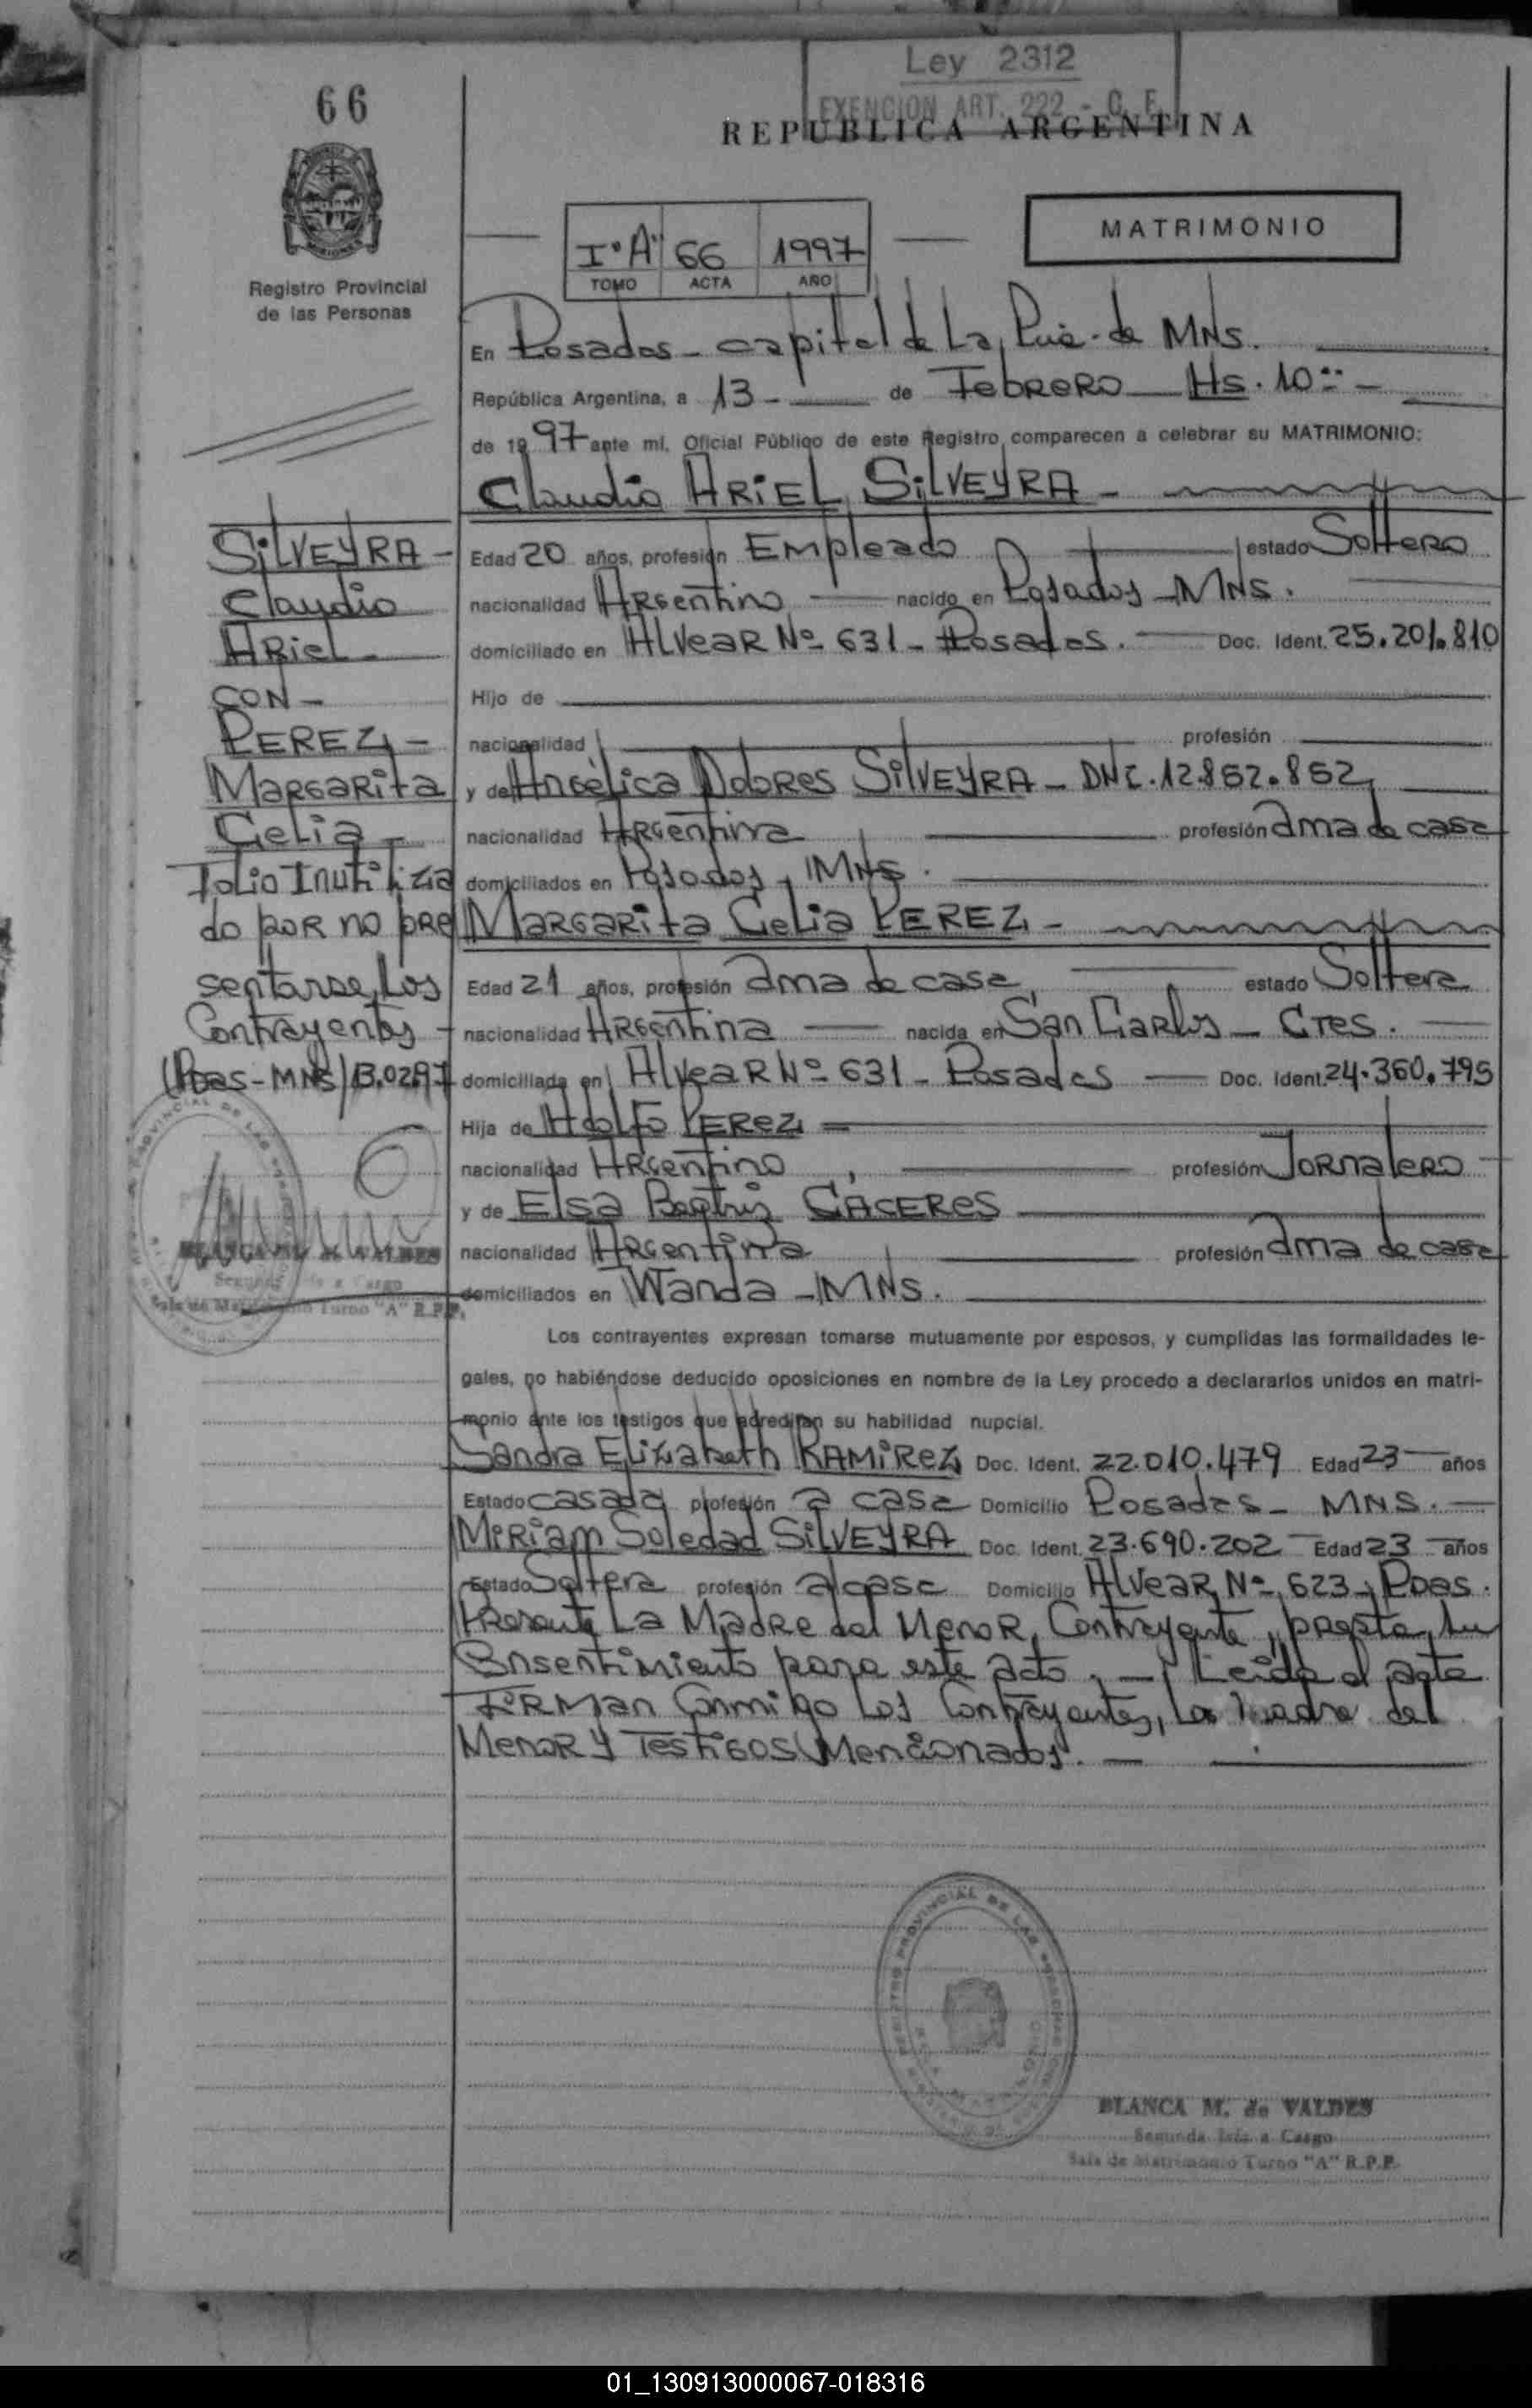 Ley 2312
EXENCION ART. 222 - C. F.
66
REPUBLICA ARGENTINA
MATRIMONIO
I° "A" 66 1997
TOMO ACTA AÑO
Registro Provincial
de las Personas
En Posadas - capital de La Pcia. de MNS.
República Argentina, a 13 - de Febrero Hs. 10
de 19 97 ante mí, Oficial Público de este Registro, comparecen a celebrar su MATRIMONIO:
Claudio ARIEL SILVEYRA -
Edad 20 años, profesión Empleado estado Soltero
nacionalidad Argentino nacido en Posadas - MNS.
domiciliado en Alvear Nº 631 - Posadas. Doc. Ident. 25.201.810
Hijo de
nacionalidad profesión
y de Angélica Dolores SILVEYRA - DNI. 12.852.852
nacionalidad Argentina profesión ama de casa
domiciliados en Posadas, MNS.
Margarita Celia PEREZ -
Edad 21 años, profesión ama de casa estado Soltera
nacionalidad Argentina nacida en San Carlos - Ctes.
domiciliada en Alvear Nº 631 - Posadas Doc. Ident. 24.360.795
Hija de Adolfo PEREZ
nacionalidad Argentino profesión Jornalero
y de Elsa Beatriz CACERES
nacionalidad Argentina profesión ama de casa
domiciliados en Wanda - MNS.
SILVEYRA -
Claudio
Ariel -
CON -
PEREZ -
Margarita
Celia -
Folio Inutiliza
do por no pre
sentarse Los
Contrayentes -
(Pdas - MNS/13.02.97
BLANCA M. de VALDES
Segunda Jefa a Cargo
Sala de Matrimonio Turno "A" R.P.P.
Los contrayentes expresan tomarse mutuamente por esposos, y cumplidas las formalidades le-
gales, no habiéndose deducido oposiciones en nombre de la Ley procedo a declararlos unidos en matri-
monio ante los testigos que acreditan su habilidad nupcial.
Sandra Elizabeth RAMIREZ Doc. Ident. 22.010.479 Edad 23 años
Estado casada profesión a casa Domicilio Posadas - MNS.
Miriam Soledad SILVEYRA Doc. Ident. 23.690.202 Edad 23 años
Estado Soltera profesión a casa Domicilio Alvear Nº 623 - Pdas.
Presente La Madre del Menor Contrayente, presta su
Consentimiento para este acto. - Leída el acta
Firman Conmigo Los Contrayentes, La Madre del
Menor y Testigos Mencionados. -
REGISTRO PROVINCIAL DE LAS PERSONAS
BLANCA M. de VALDES
Segunda Jefa a Cargo
Sala de Matrimonio Turno "A" R.P.P.
01_130913000067-018316